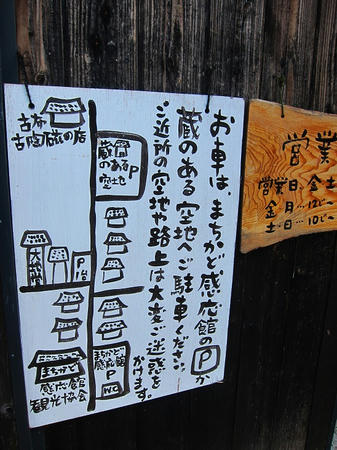 お車は、まちかど感応館のPか
蔵のある空地へご駐車ください。
ご近所の空地や路上は大変ご迷惑を
かけます。
古布
古陶磁の店
蔵
のある
空地
P
P
まちかど
感応館
観光協会
まちかど
感応館
P
WC
営業
営業日…金土
金月…12じ〜
土日…10じ〜